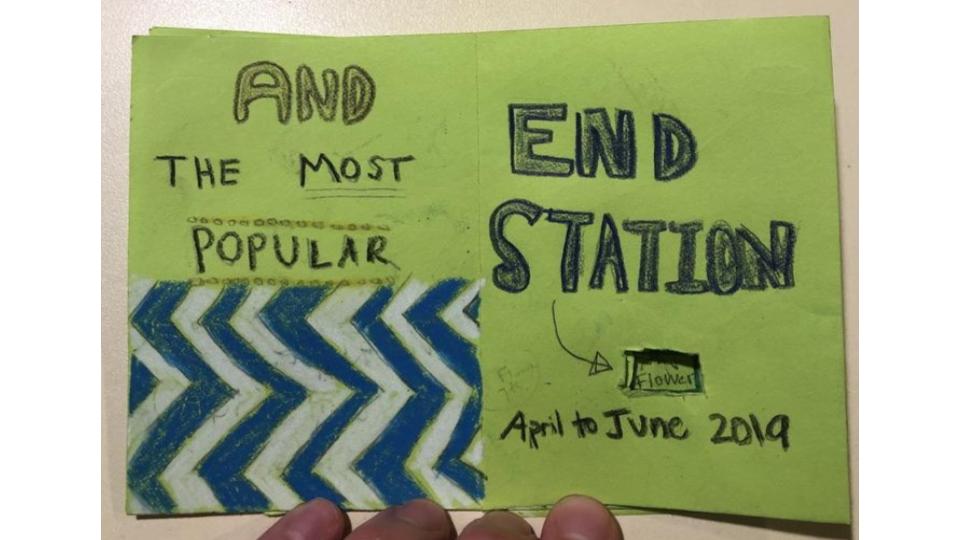 AND
THE MOST
POPULAR
END
STATION
Flower
April to June 2019